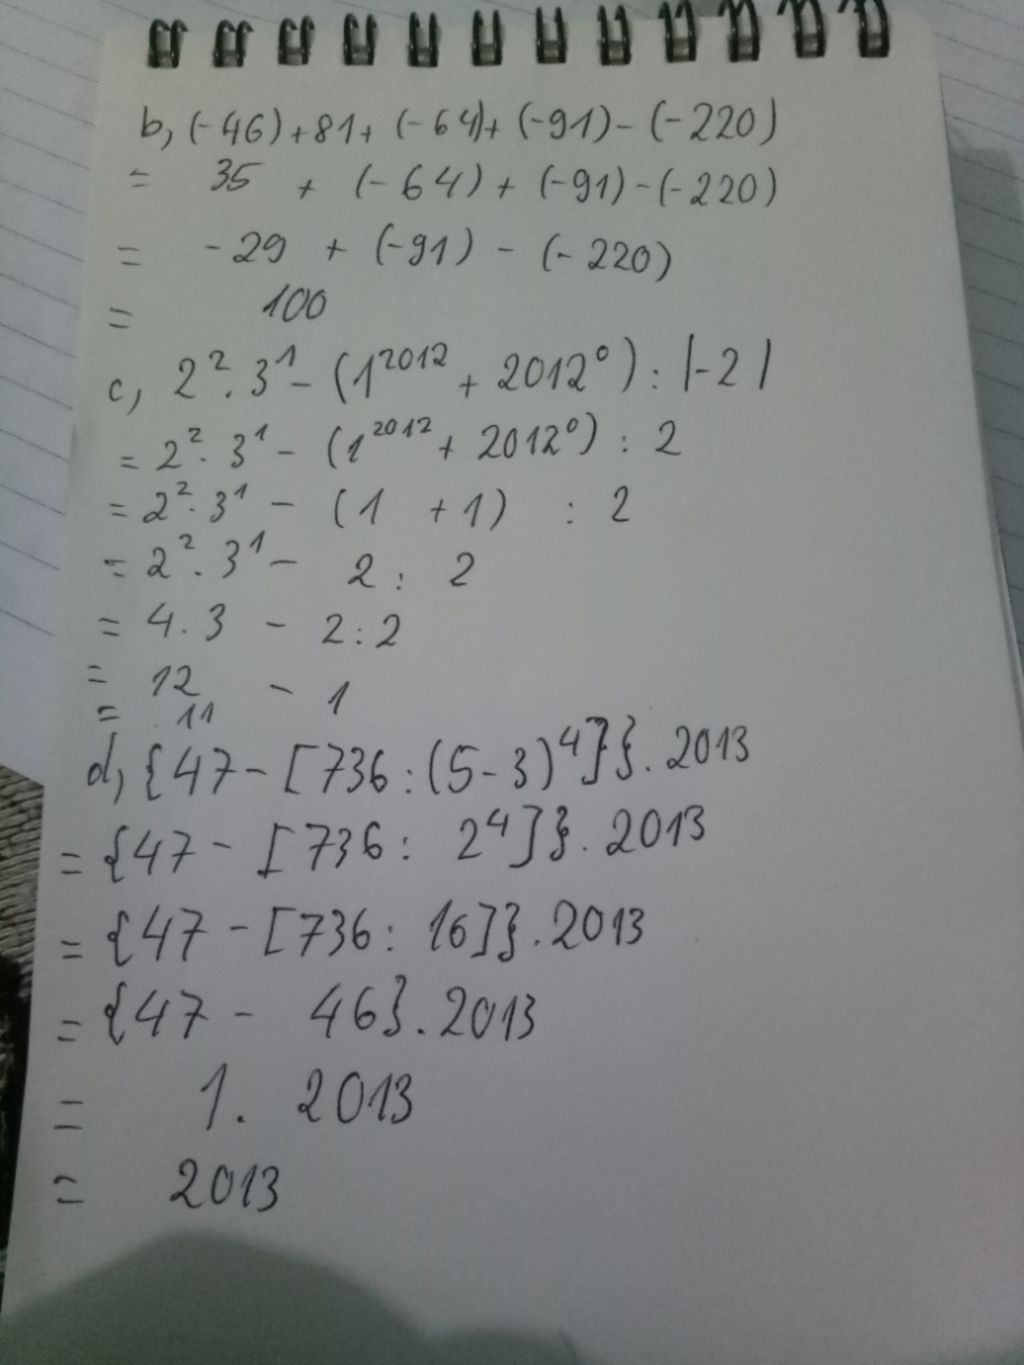 b, (-46) + 81 + (-64) + (-91) - (-220)
= 35 + (-64) + (-91) - (-220)
= -29 + (-91) - (-220)
= 100
c, 2² . 3¹ - (1²⁰¹² + 2012⁰) : |-2|
= 2² . 3¹ - (1²⁰¹² + 2012⁰) : 2
= 2² . 3¹ - (1 + 1) : 2
= 2² . 3¹ - 2 : 2
= 4 . 3 - 2 : 2
= 12 - 1
= 11
d, {47 - [736 : (5 - 3)⁴]} . 2013
= {47 - [736 : 2⁴]} . 2013
= {47 - [736 : 16]} . 2013
= {47 - 46} . 2013
= 1 . 2013
= 2013